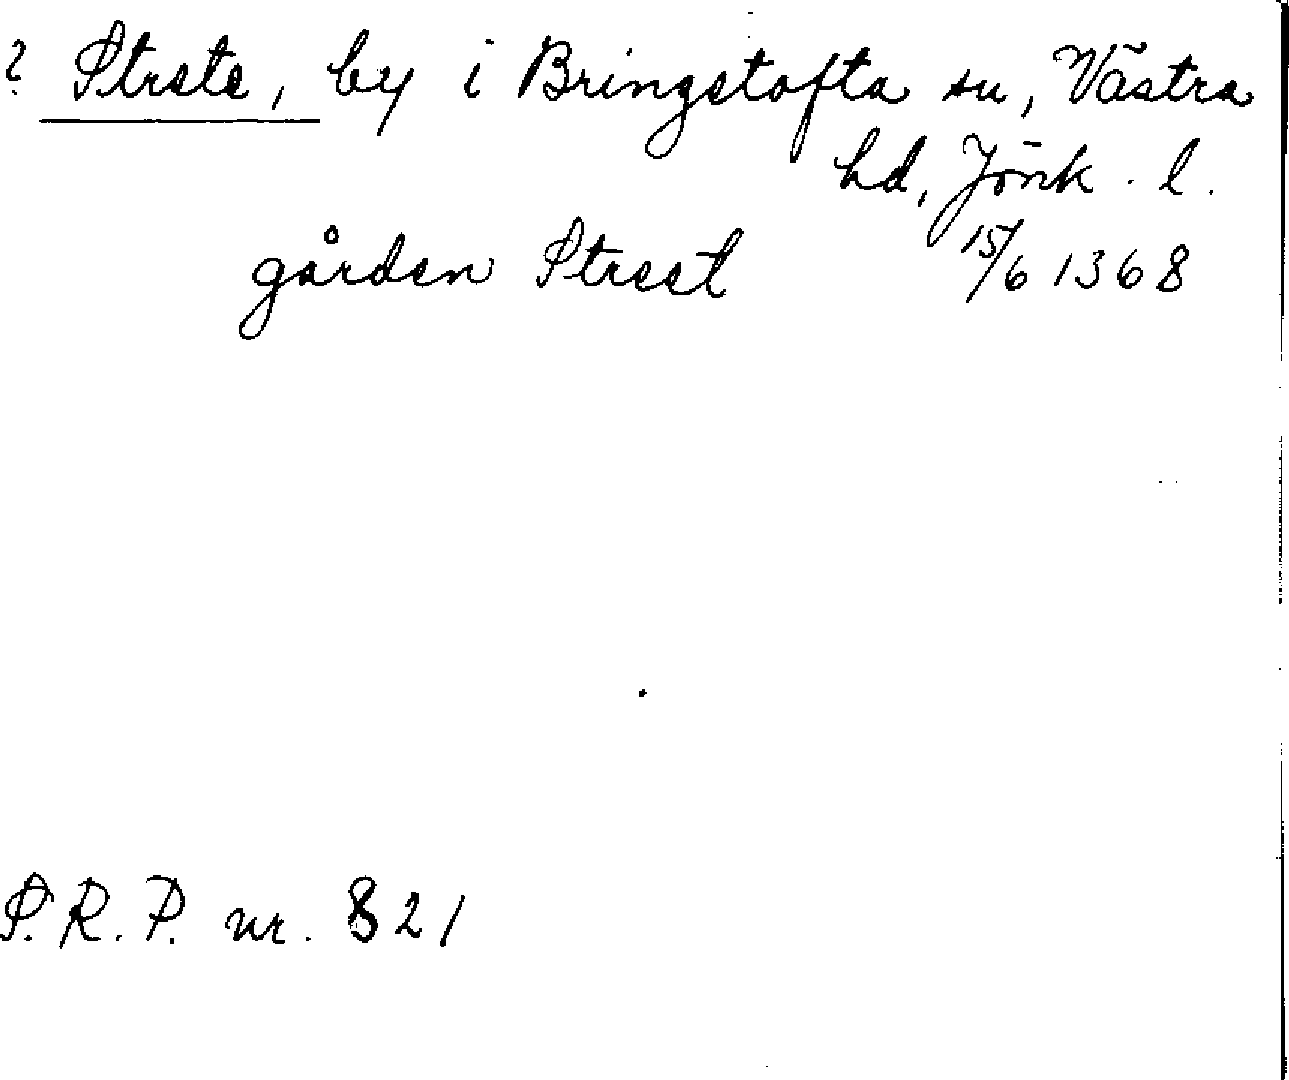 ? Strete, by i Bringetofta sn, Västra
hd, Jönk. l.
gården Street 15/6 1368
S.R.P. nr. 821